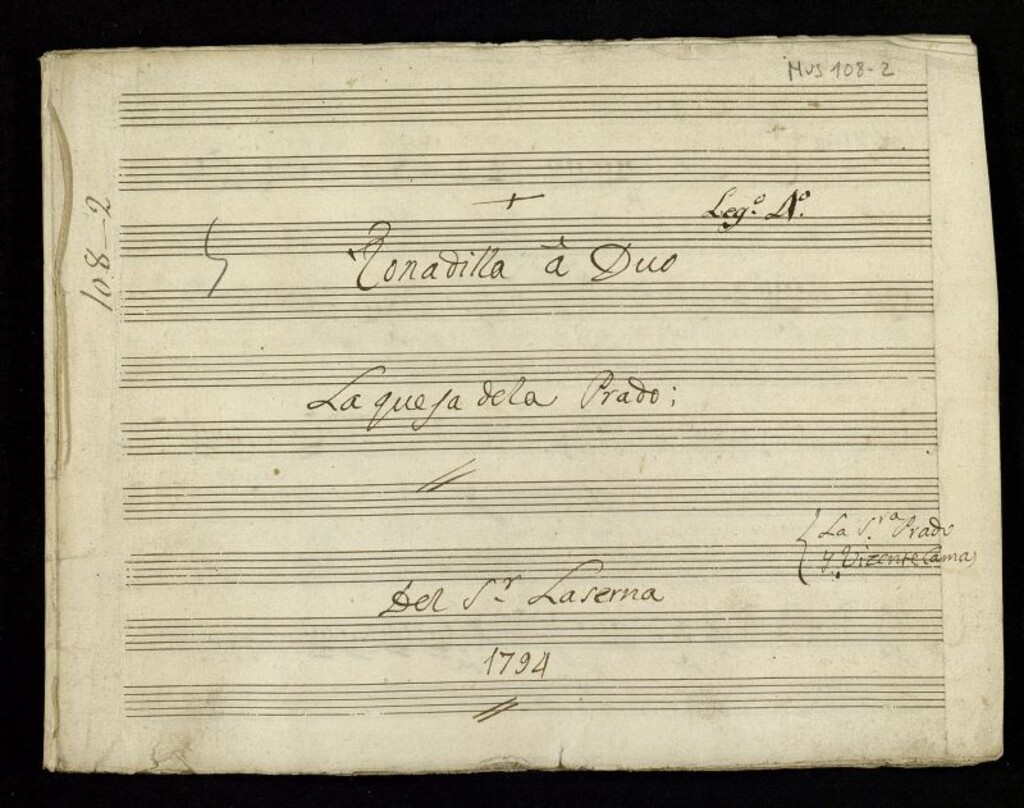 MUS 108-2
108-2
Leg.º 4.º
Tonadilla â Duo
La queja dela Prado;
La S.ra Prado
y Vizente Camas
Del S.r Laserna
1794